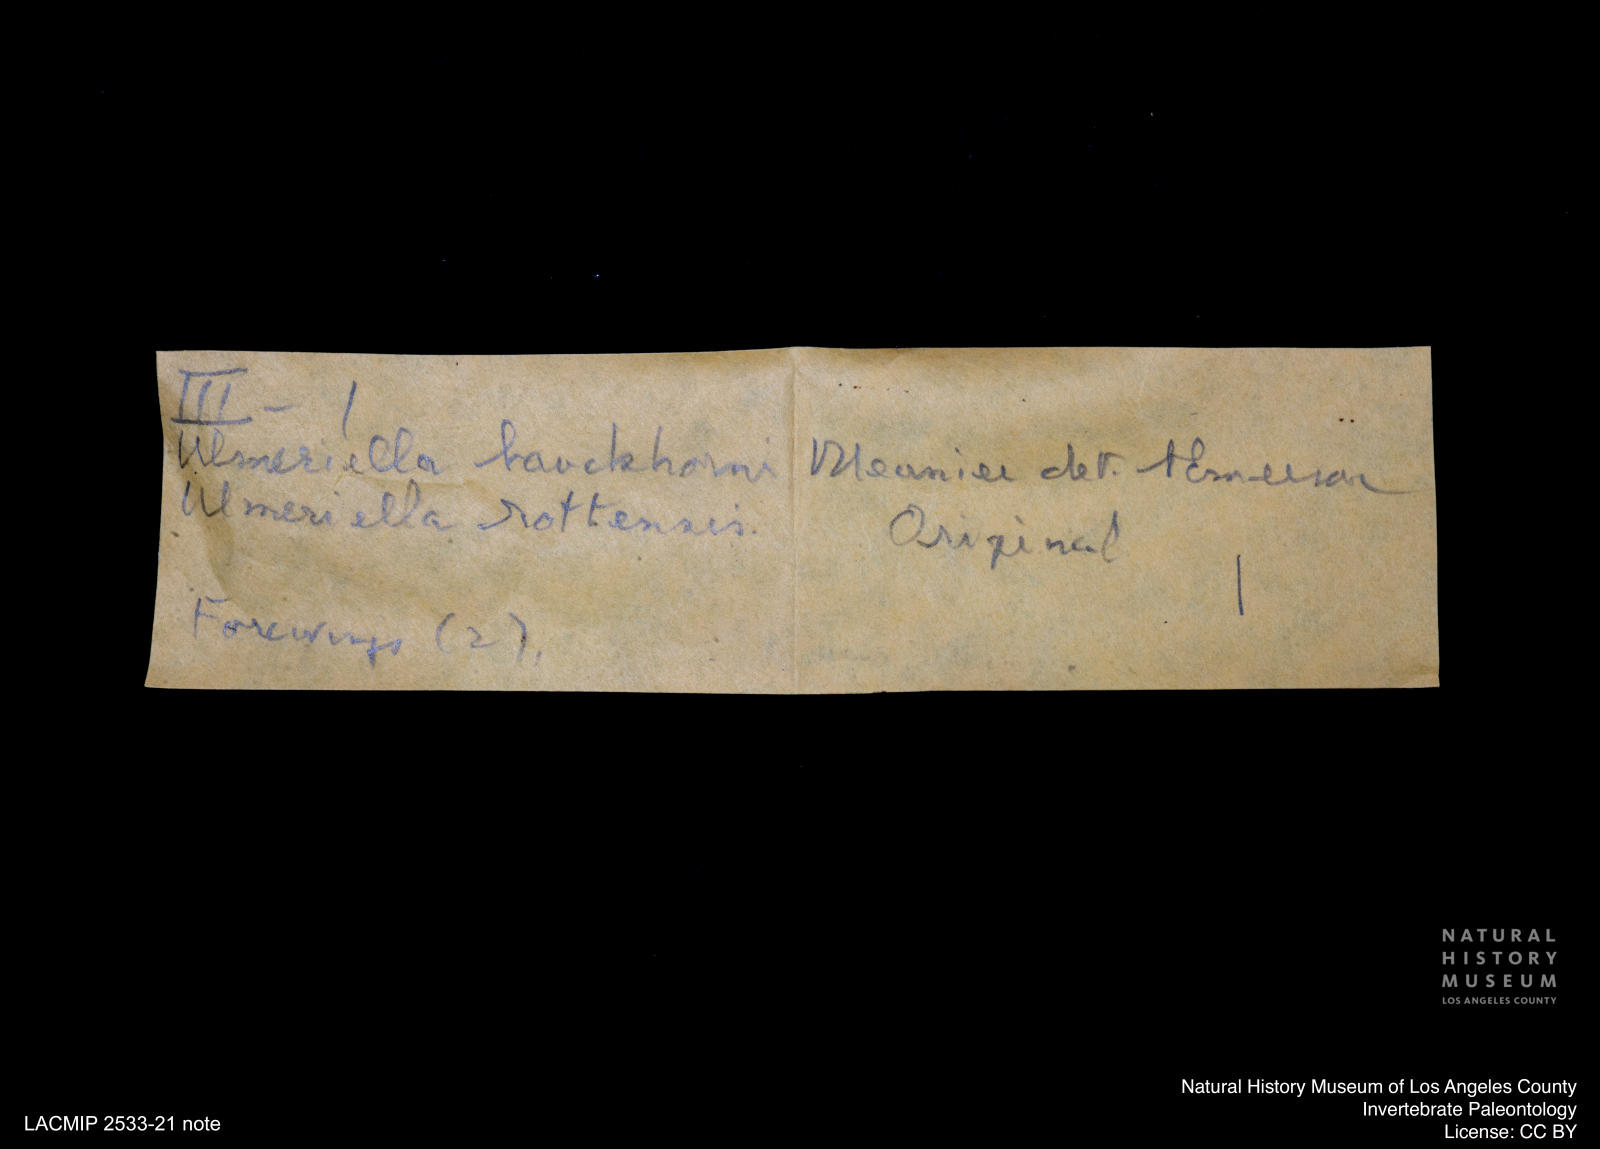 III - 1
Ulmeriella bauckhorni Meunier det.
Ulmeriella rottensis.
Original
1
Forewings (2).
NATURAL
HISTORY
MUSEUM
LOS ANGELES COUNTY
Natural History Museum of Los Angeles County
Invertebrate Paleontology
License: CC BY
LACMIP 2533-21 note